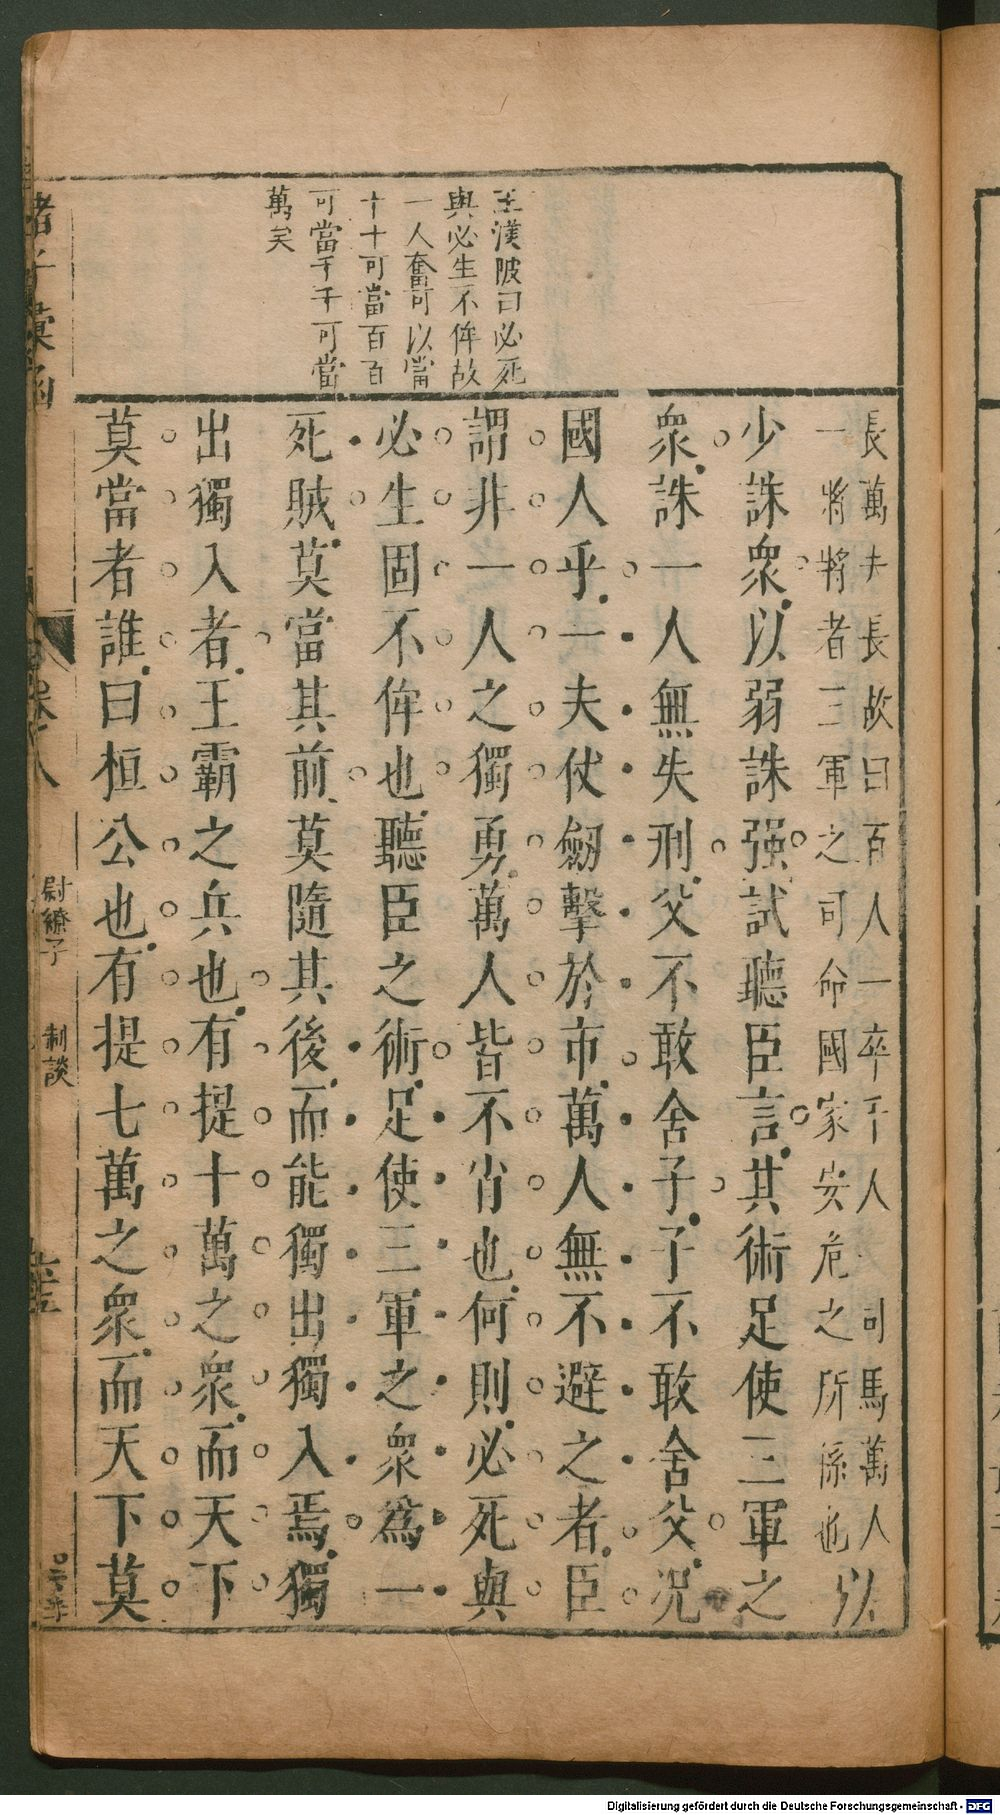 王渼陂曰必死
與必生不侔故
一人奮可以當
十十可當百百
可當千千可當
萬矣
長萬夫長故曰百人一卒千人 司馬萬人
一將將者三軍之司命國家安危之所係也
以
少誅衆以弱誅强試聽臣言其術足使三軍之
衆誅一人無失刑父不敢舍子子不敢舍父况
國人乎一夫仗劒擊於市萬人無不避之者臣
謂非一人之獨勇萬人皆不肖也何則必死與
必生固不侔也聽臣之術足使三軍之衆爲一
死賊莫當其前莫隨其後而能獨出獨入焉獨
出獨入者王霸之兵也有提十萬之衆而天下
莫當者誰曰桓公也有提七萬之衆而天下莫
諸子彙函
卷八
尉繚子 制談
Digitalisierung gefördert durch die Deutsche Forschungsgemeinschaft - DFG